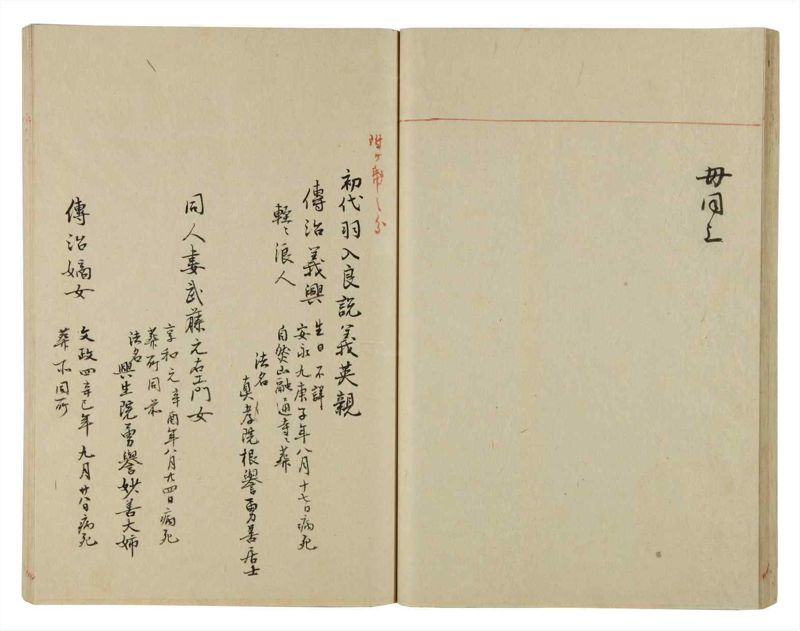 母同上
初代羽入良説義英親
傳治義興
生日不詳
安永九庚子年八月十七日病死
自然山融通寺葬
軽キ浪人
法名
真孝院根誉勇善居士
同人妻武藤元右エ門女
享和元辛酉年八月廿四日病死
葬所同前
法名
興生院勇誉妙善大姉
傳治嫡女
文政四辛巳年九月廿八日病死
葬不同所